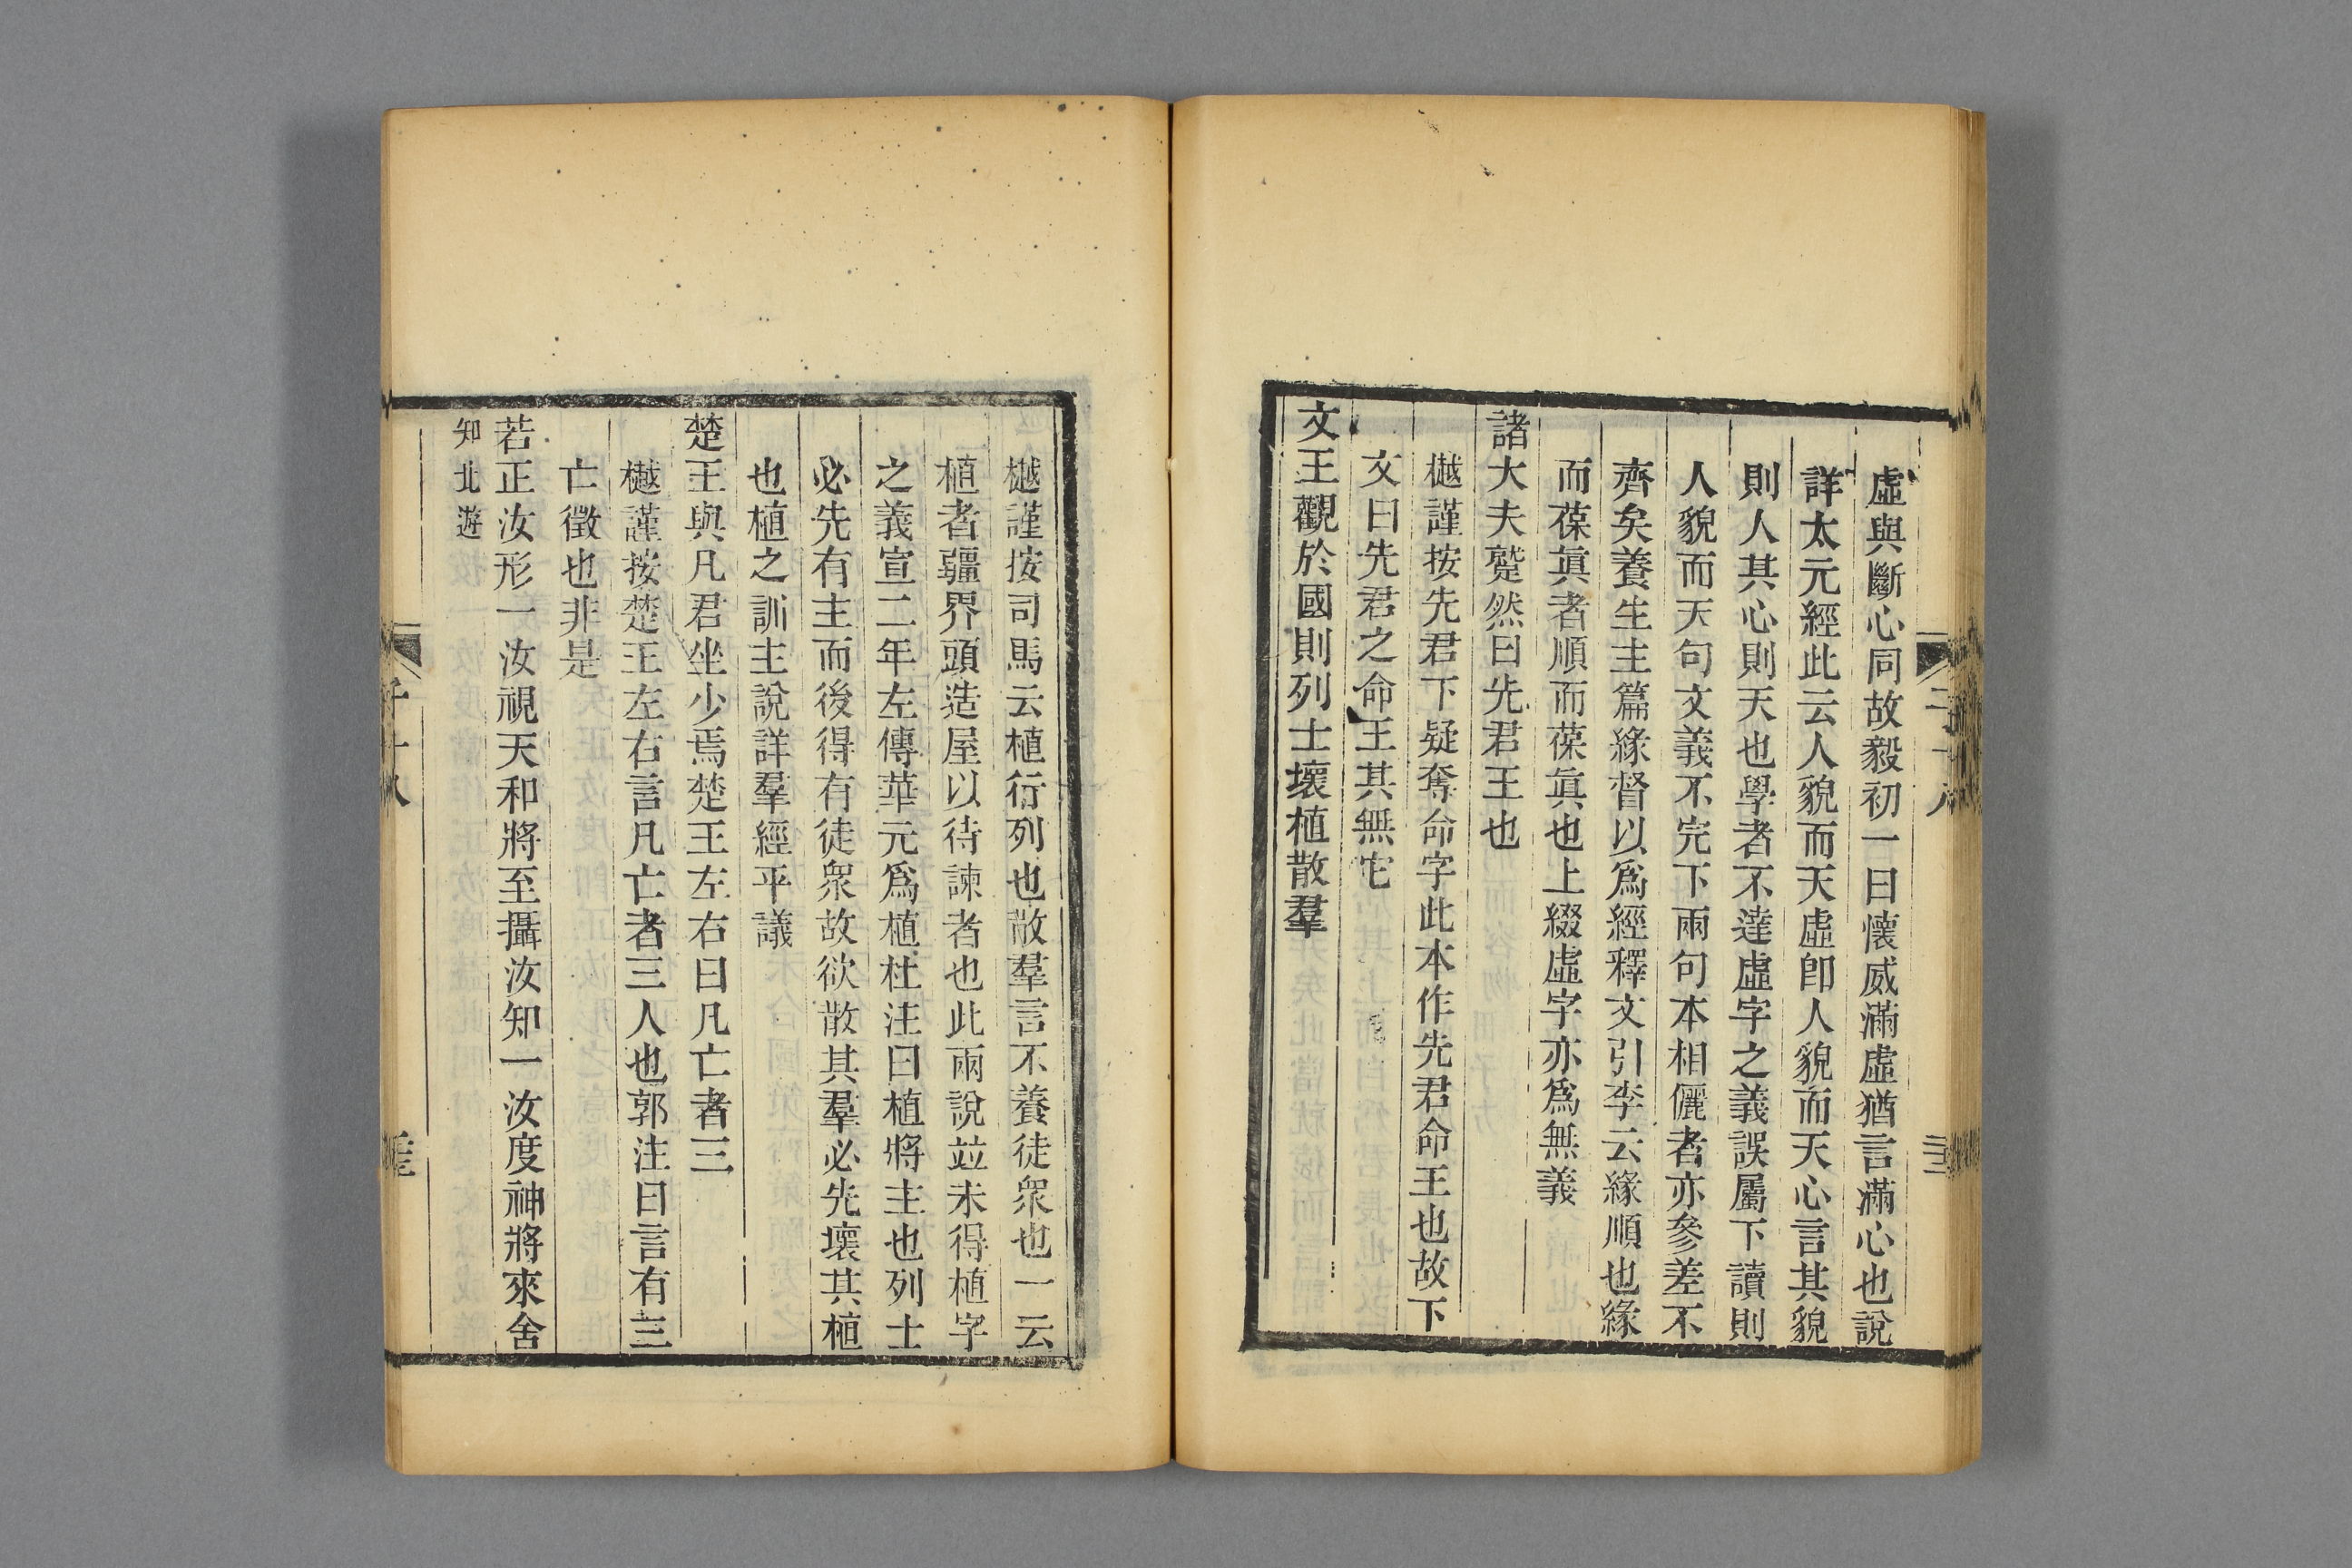 虛與斷心同故毅初一曰懷威滿虛猶言滿心也說
詳太元經此云人貌而天虛卽人貌而天心言其貌
則人其心則天也學者不達虛字之義誤屬下讀則
人貌而天句文義不完下兩句本相儷者亦參差不
齊矣養生主篇緣督以爲經釋文引李云緣順也緣
而葆眞者順而葆眞也上綴虛字亦爲無義
諸大夫蹵然曰先君王也
樾謹按先君下疑奪命字此本作先君命王也故下
文曰先君之命王其無它
文王觀於國則列士壞植散羣
樾謹按司馬云植行列也散羣言不養徒衆也一云
植者疆界頭造屋以待諫者也此兩說竝未得植字
之義宣二年左傳華元爲植杜注曰植將主也列士
必先有主而後得有徒衆故欲散其羣必先壞其植
也植之訓主說詳羣經平議
楚王與凡君坐少焉楚王左右曰凡亡者三
樾謹按楚王左右言凡亡者三人也郭注曰言有三
亡徵也非是
若正汝形一汝視天和將至攝汝知一汝度神將來舍
知北遊